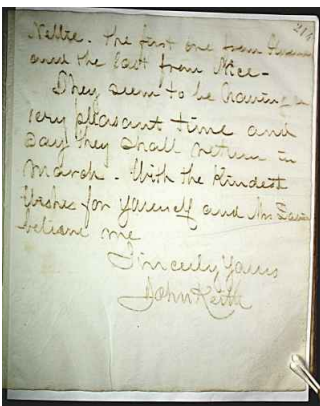 216
Nellie. the first one from
and the last from Nice -
They seem to be having a
very pleasant time and
say they shall return in
March. With the Kindest
Wishes for yourself and Mrs
believe me
Sincerely Yours
John Keith